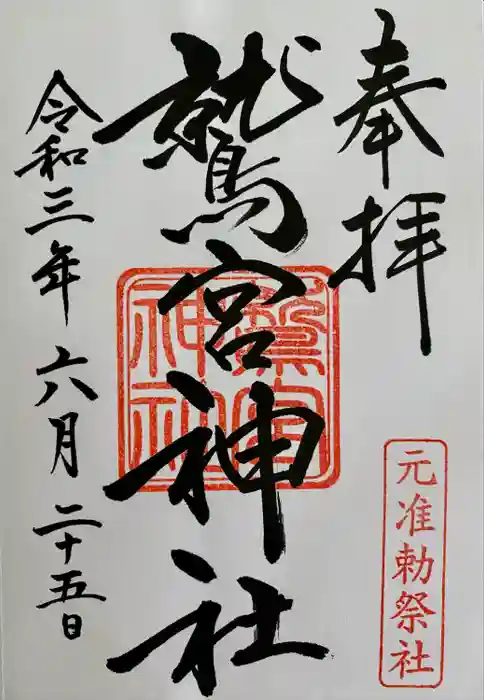 奉拝
鷲宮神社
令和三年六月二十五日
鷲宮神社
元准勅祭社